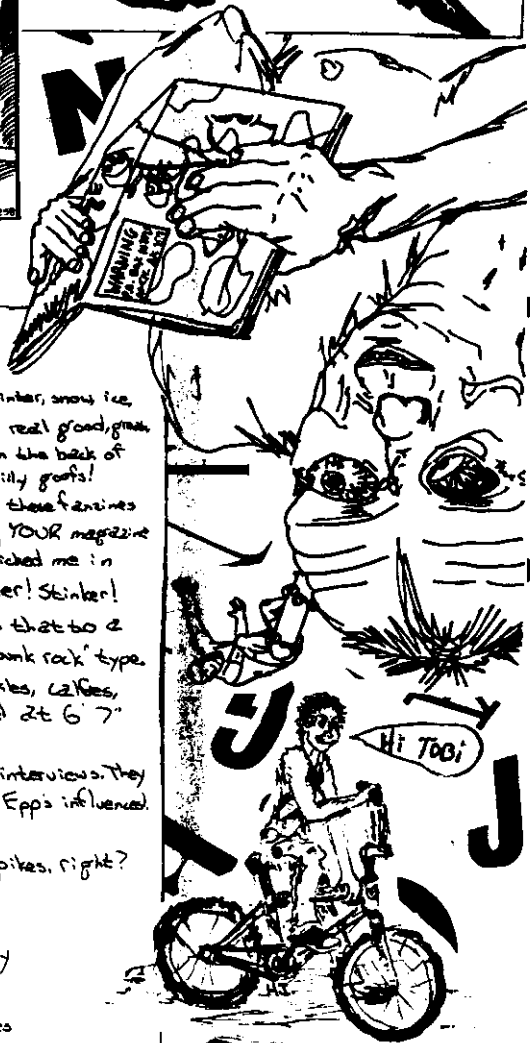 N
WARNING
inter, snow ice,
real good, green
n the back of
illy goofs!
these fanzines
YOUR magazine
ched me in
er! Stinker!
s that to a
unk rock' type.
at 6' 7"
interviews. They
Epp's influenced.
pikes, right?
y
es
J
Hi TOBi
J
HI